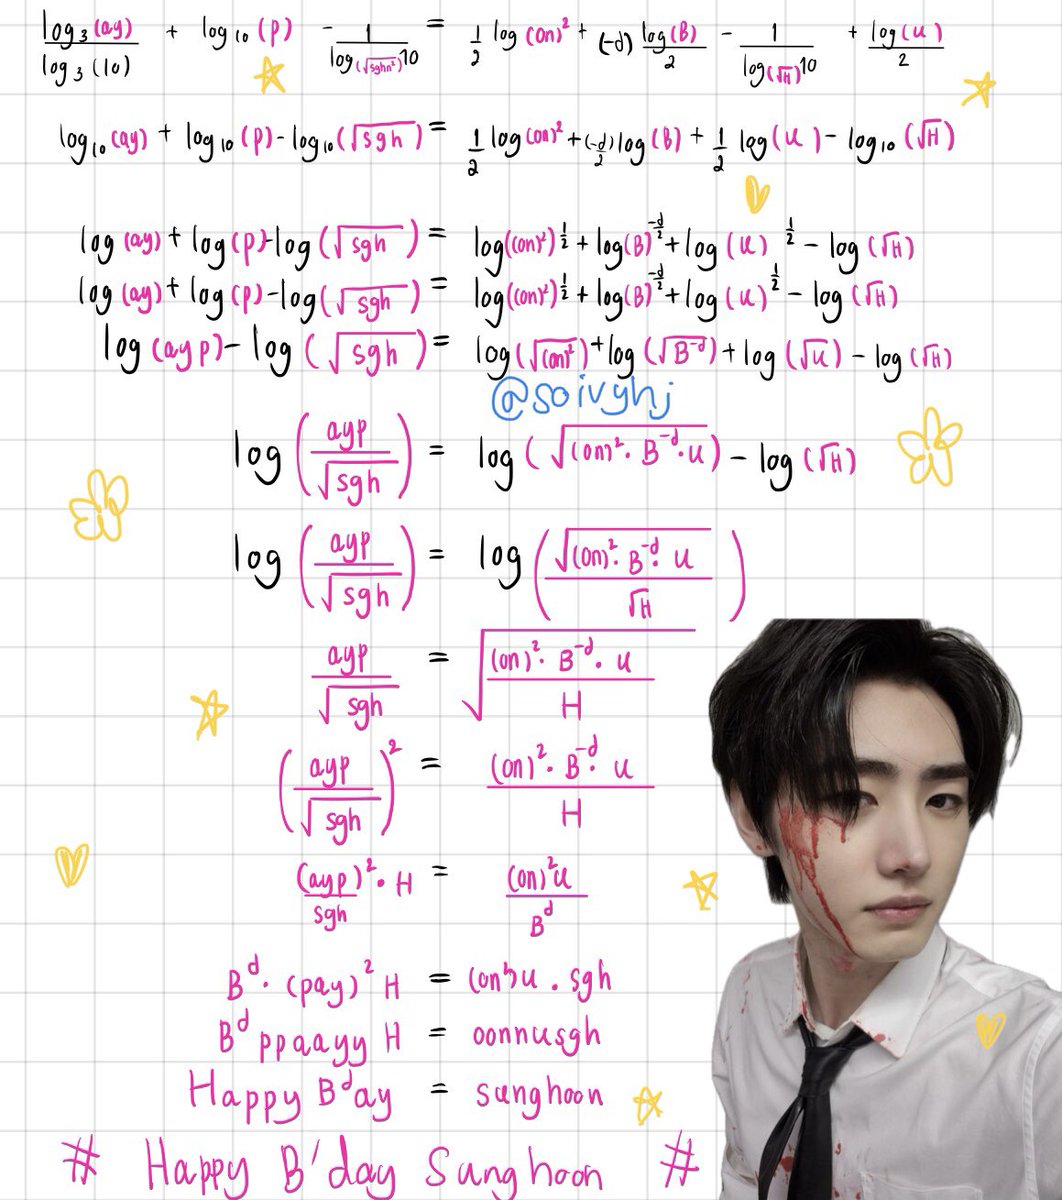 log₃(ay)/log₃(10) + log₁₀(p) - 1/log₍√sghn²₎10 = 1/2 log(on)² + (-d) log(B)/2 - 1/log₍√H₎10 + log(u)/2
log₁₀(ay) + log₁₀(p) - log₁₀(√sgh) = 1/2 log(on)² + (-d)/2 log(B) + 1/2 log(u) - log₁₀(√H)
log(ay) + log(p) - log(√sgh) = log((on)²)^1/2 + log(B)^-d/2 + log(u)^1/2 - log(√H)
log(ay) + log(p) - log(√sgh) = log((on)²)^1/2 + log(B)^-d/2 + log(u)^1/2 - log(√H)
log(ayp) - log(√sgh) = log(√(on)²) + log(√B^-d) + log(√u) - log(√H)
@soivyhj
log(ayp/√sgh) = log(√(on)²·B^-d·u) - log(√H)
log(ayp/√sgh) = log(√(on)²·B^-d·u/√H)
ayp/√sgh = √((on)²·B^-d·u/H)
(ayp/√sgh)² = (on)²·B^-d·u/H
(ayp)²/sgh·H = (on)²u/B^d
B^d·(pay)²H = (on)²u.sgh
B^d ppaayy H = oonnusgh
Happy B^d ay = sunghoon
# Happy B'day Sunghoon #